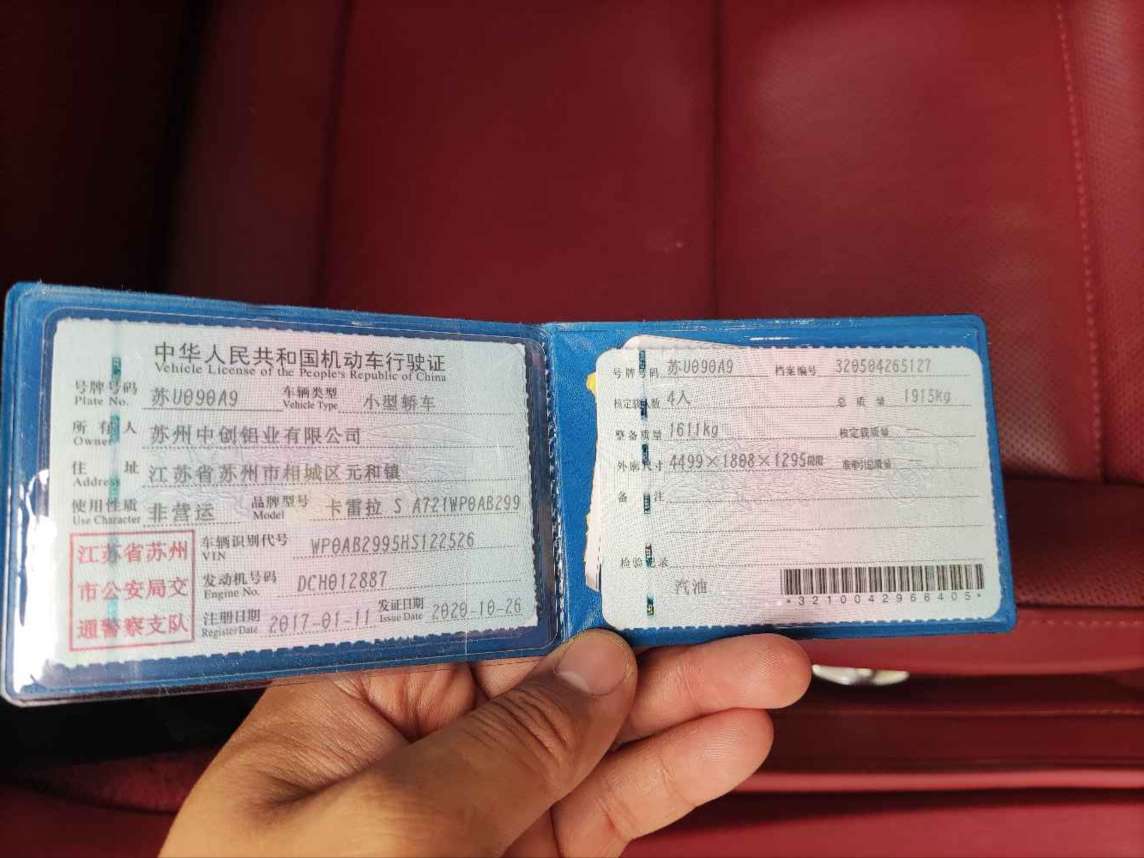 中华人民共和国机动车行驶证
Vehicle License of the People's Republic of China
号牌号码 Plate No. 苏U090A9 车辆类型 Vehicle Type 小型轿车
所有人 Owner 苏州中创铝业有限公司
住址 Address 江苏省苏州市相城区元和镇
使用性质 Use Character 非营运 品牌型号 Model 卡雷拉 S A721WP0AB299
江苏省苏州
市公安局交
通警察支队
车辆识别代号 VIN WP0AB2995HS122526
发动机号码 Engine No. DCH012887
注册日期 Register Date 2017-01-11 发证日期 Issue Date 2020-10-26
号牌号码 苏U090A9 档案编号 320504265127
核定载人数 4人 总质量 1915kg
整备质量 1611kg 核定载质量
外廓尺寸 4499×1808×1295mm 准牵引总质量
备注
检验记录
汽油
*3210042966405*